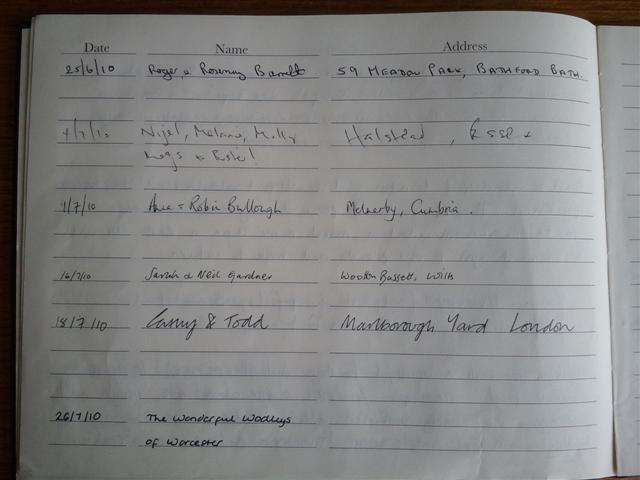 Date Name Address
25/6/10 Roger & Rosemary Barrett 59 MEADOW PARK, BATHFORD BATH.
4/7/10 Nigel, Melanie, Molly Halstead, Essex
&
9/7/10 & Robin Bullough Melmerby, Cumbria.
16/7/10 Sarah & Neil Gardner Wootton Bassett, Wilts
18/7/10 & Todd Marlborough Yard London
26/7/10 The Wonderful Wodleys
of Worcester